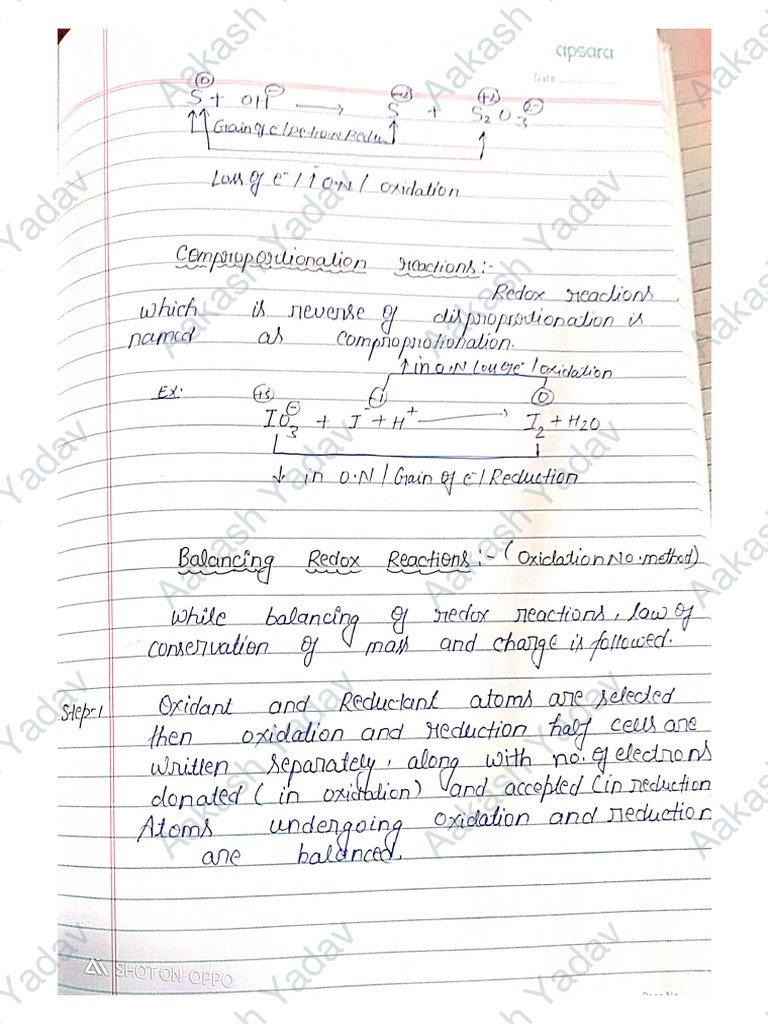 apsara
Date
(0) (-2) (+2)
S + OH⊖ ⟶ S + S₂O₃ 2-
Grain of e / Redu
Loss of e⁻ / ↑ O.N / oxidation
Comproportionation reactions:-
Redox reactions
which is reverse of disproprotionation is
named as comproprotionation.
↑ in O.N / Loss e⁻ / oxidation
Ex: (+5) (-1) (0)
IO₃⊖ + I⁻ + H⁺ ⟶ I₂ + H2O
↓ in O.N / Grain of e⁻ / Reduction
Balancing Redox Reactions:- (Oxidation No. method)
While balancing of redox reactions, law of
conservation of mass and charge is followed.
Step-1 Oxidant and Reductant atoms are selected
then oxidation and reduction half cells are
written separately, along with no. of electrons
donated (in oxidation) and accepted (in reduction
Atoms undergoing oxidation and reduction
are balanced.
SHOT ON OPPO
Aakash Yadav